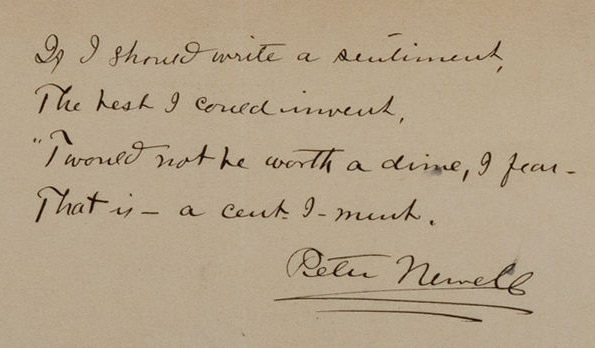 If I should write a sentiment,
The best I could invent,
"Twould not be worth a dime, I fear-
That is - a cent-I-ment.
Peter Newell